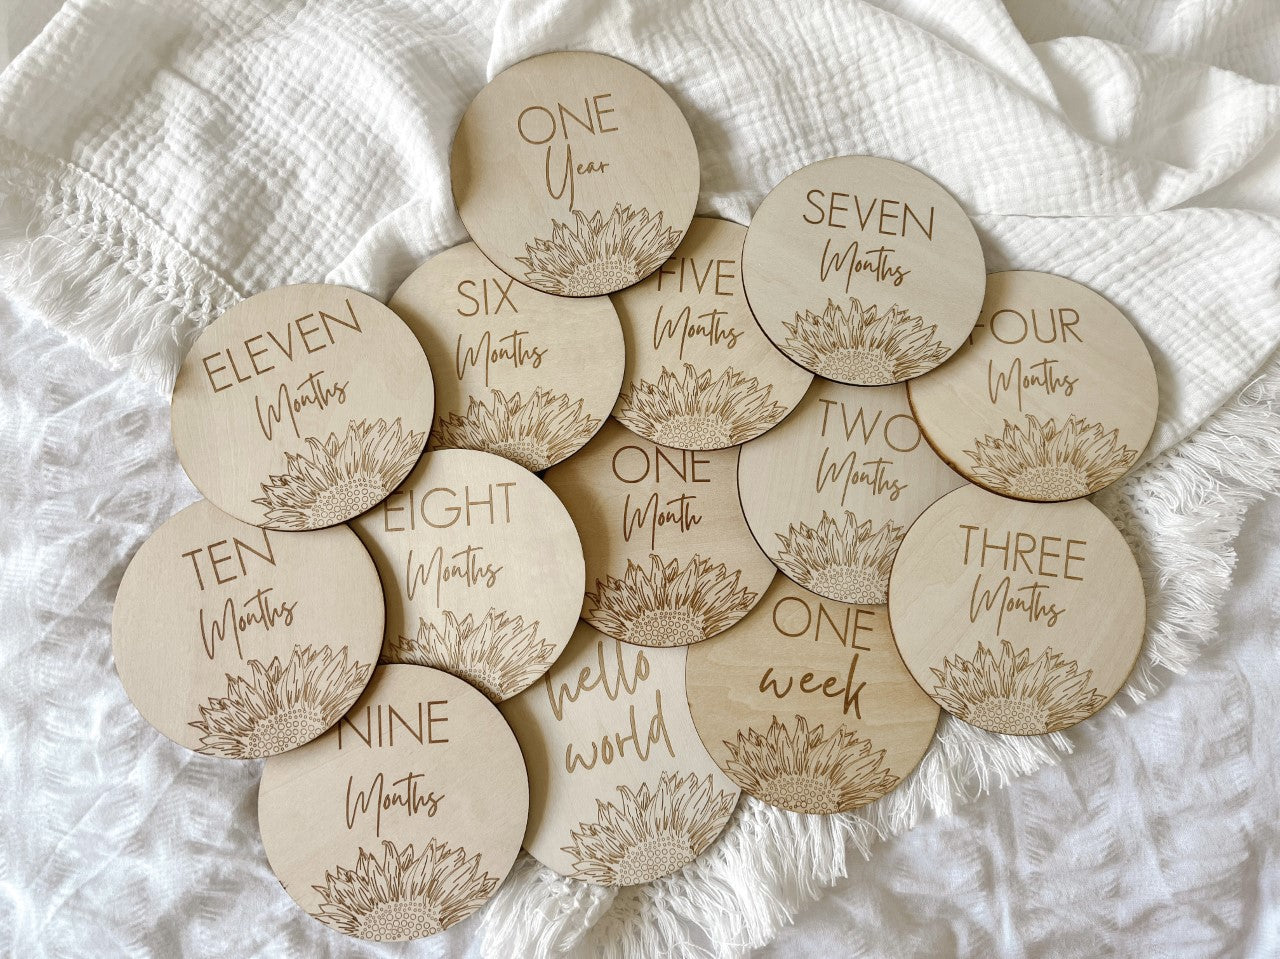 ONE
Year
SEVEN
Months
SIX
Months
FIVE
Months
FOUR
Months
ELEVEN
Months
TWO
Months
ONE
Month
EIGHT
Months
THREE
Months
TEN
Months
ONE
week
hello
world
NINE
Months